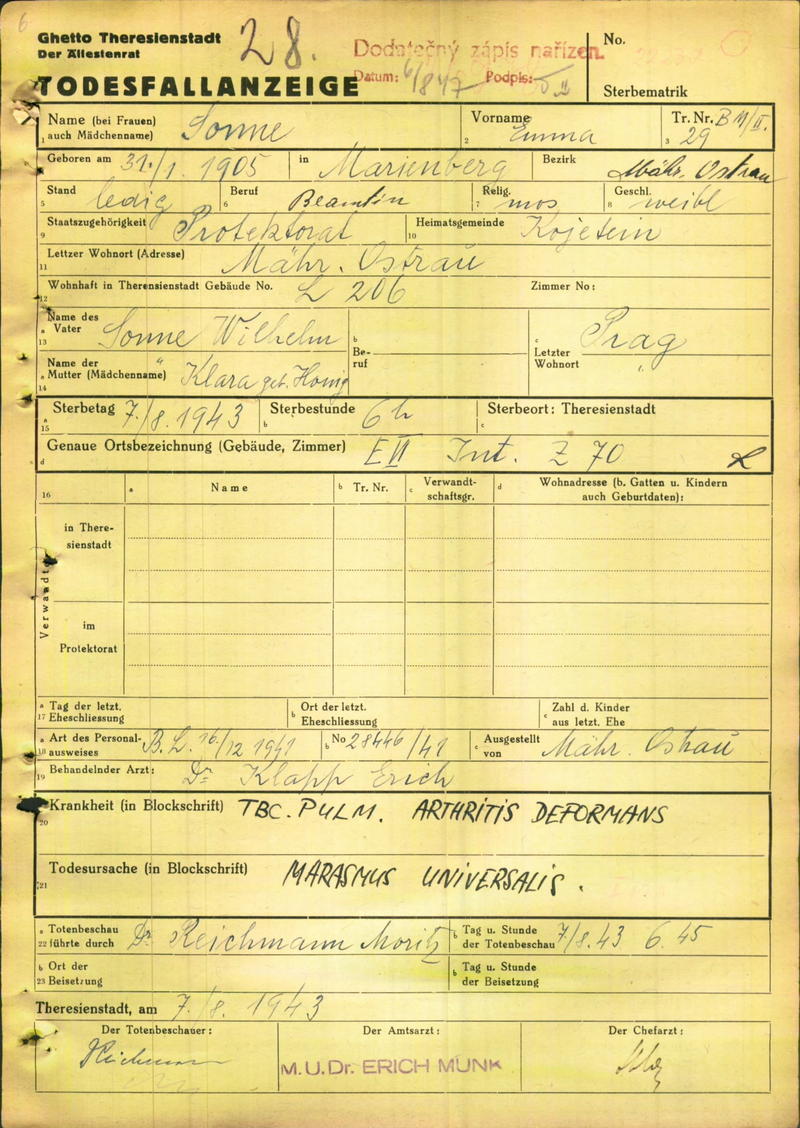 Ghetto Theresienstadt
Der Ältestenrat
28.
Dodatečný zápis nařízen.
Datum: 6/8 47 Podpis:
No.
TODESFALLANZEIGE
Sterbematrik
Name (bei Frauen) auch Mädchenname) Sonne
Vorname Emma
Tr. Nr. B 11/II. 29
1 2 3
Geboren am 31./1. 1905 in Marienberg Bezirk Mähr. Ostrau
Stand ledig Beruf Beamtin Relig. mos Geschl. weibl
5 6 7 8
Staatszugehörigkeit Protektorat Heimatsgemeinde Kojetein
9 10
Lettzer Wohnort (Adresse) Mähr. Ostrau
11
Wohnhaft in Theresienstadt Gebäude No. L 206 Zimmer No:
12
Name des Vater Sonne Wilhelm
13
b Beruf
c Letzter Wohnort Prag
Name der Mutter (Mädchenname) Klara geb. Honig "
14
Sterbetag 7./8. 1943 Sterbestunde 6 h Sterbeort: Theresienstadt
15
Genaue Ortsbezeichnung (Gebäude, Zimmer) E VI Int. Z 70
16 a Name b Tr. Nr. c Verwandtschaftsgr. d Wohnadresse (b. Gatten u. Kindern auch Geburtdaten):
Verwandte
in Theresienstadt
im Protektorat
a Tag der letzt. b Ort der letzt. c Zahl d. Kinder
17 Eheschliessung Eheschliessung aus letzt. Ehe
a Art des Personal- B. L. 16/12 1941 b No 28446/41 c Ausgestellt
18 ausweises von Mähr. Ostrau
19 Behandelnder Arzt: Dr Klapp Erich
Krankheit (in Blockschrift) TBC. PULM. ARTHRITIS DEFORMANS
20
Todesursache (in Blockschrift) MARASMUS UNIVERSALIS.
21
a Totenbeschau b Tag u. Stunde
22 führte durch Dr Reichmann Moritz der Totenbeschau 7/8. 43 6.45
b Ort der b Tag u. Stunde
23 Beisetzung der Beisetzung
Theresienstadt, am 7./8. 1943
Der Totenbeschauer: Der Amtsarzt: Der Chefarzt:
Reichmann M.U.Dr. ERICH MUNK